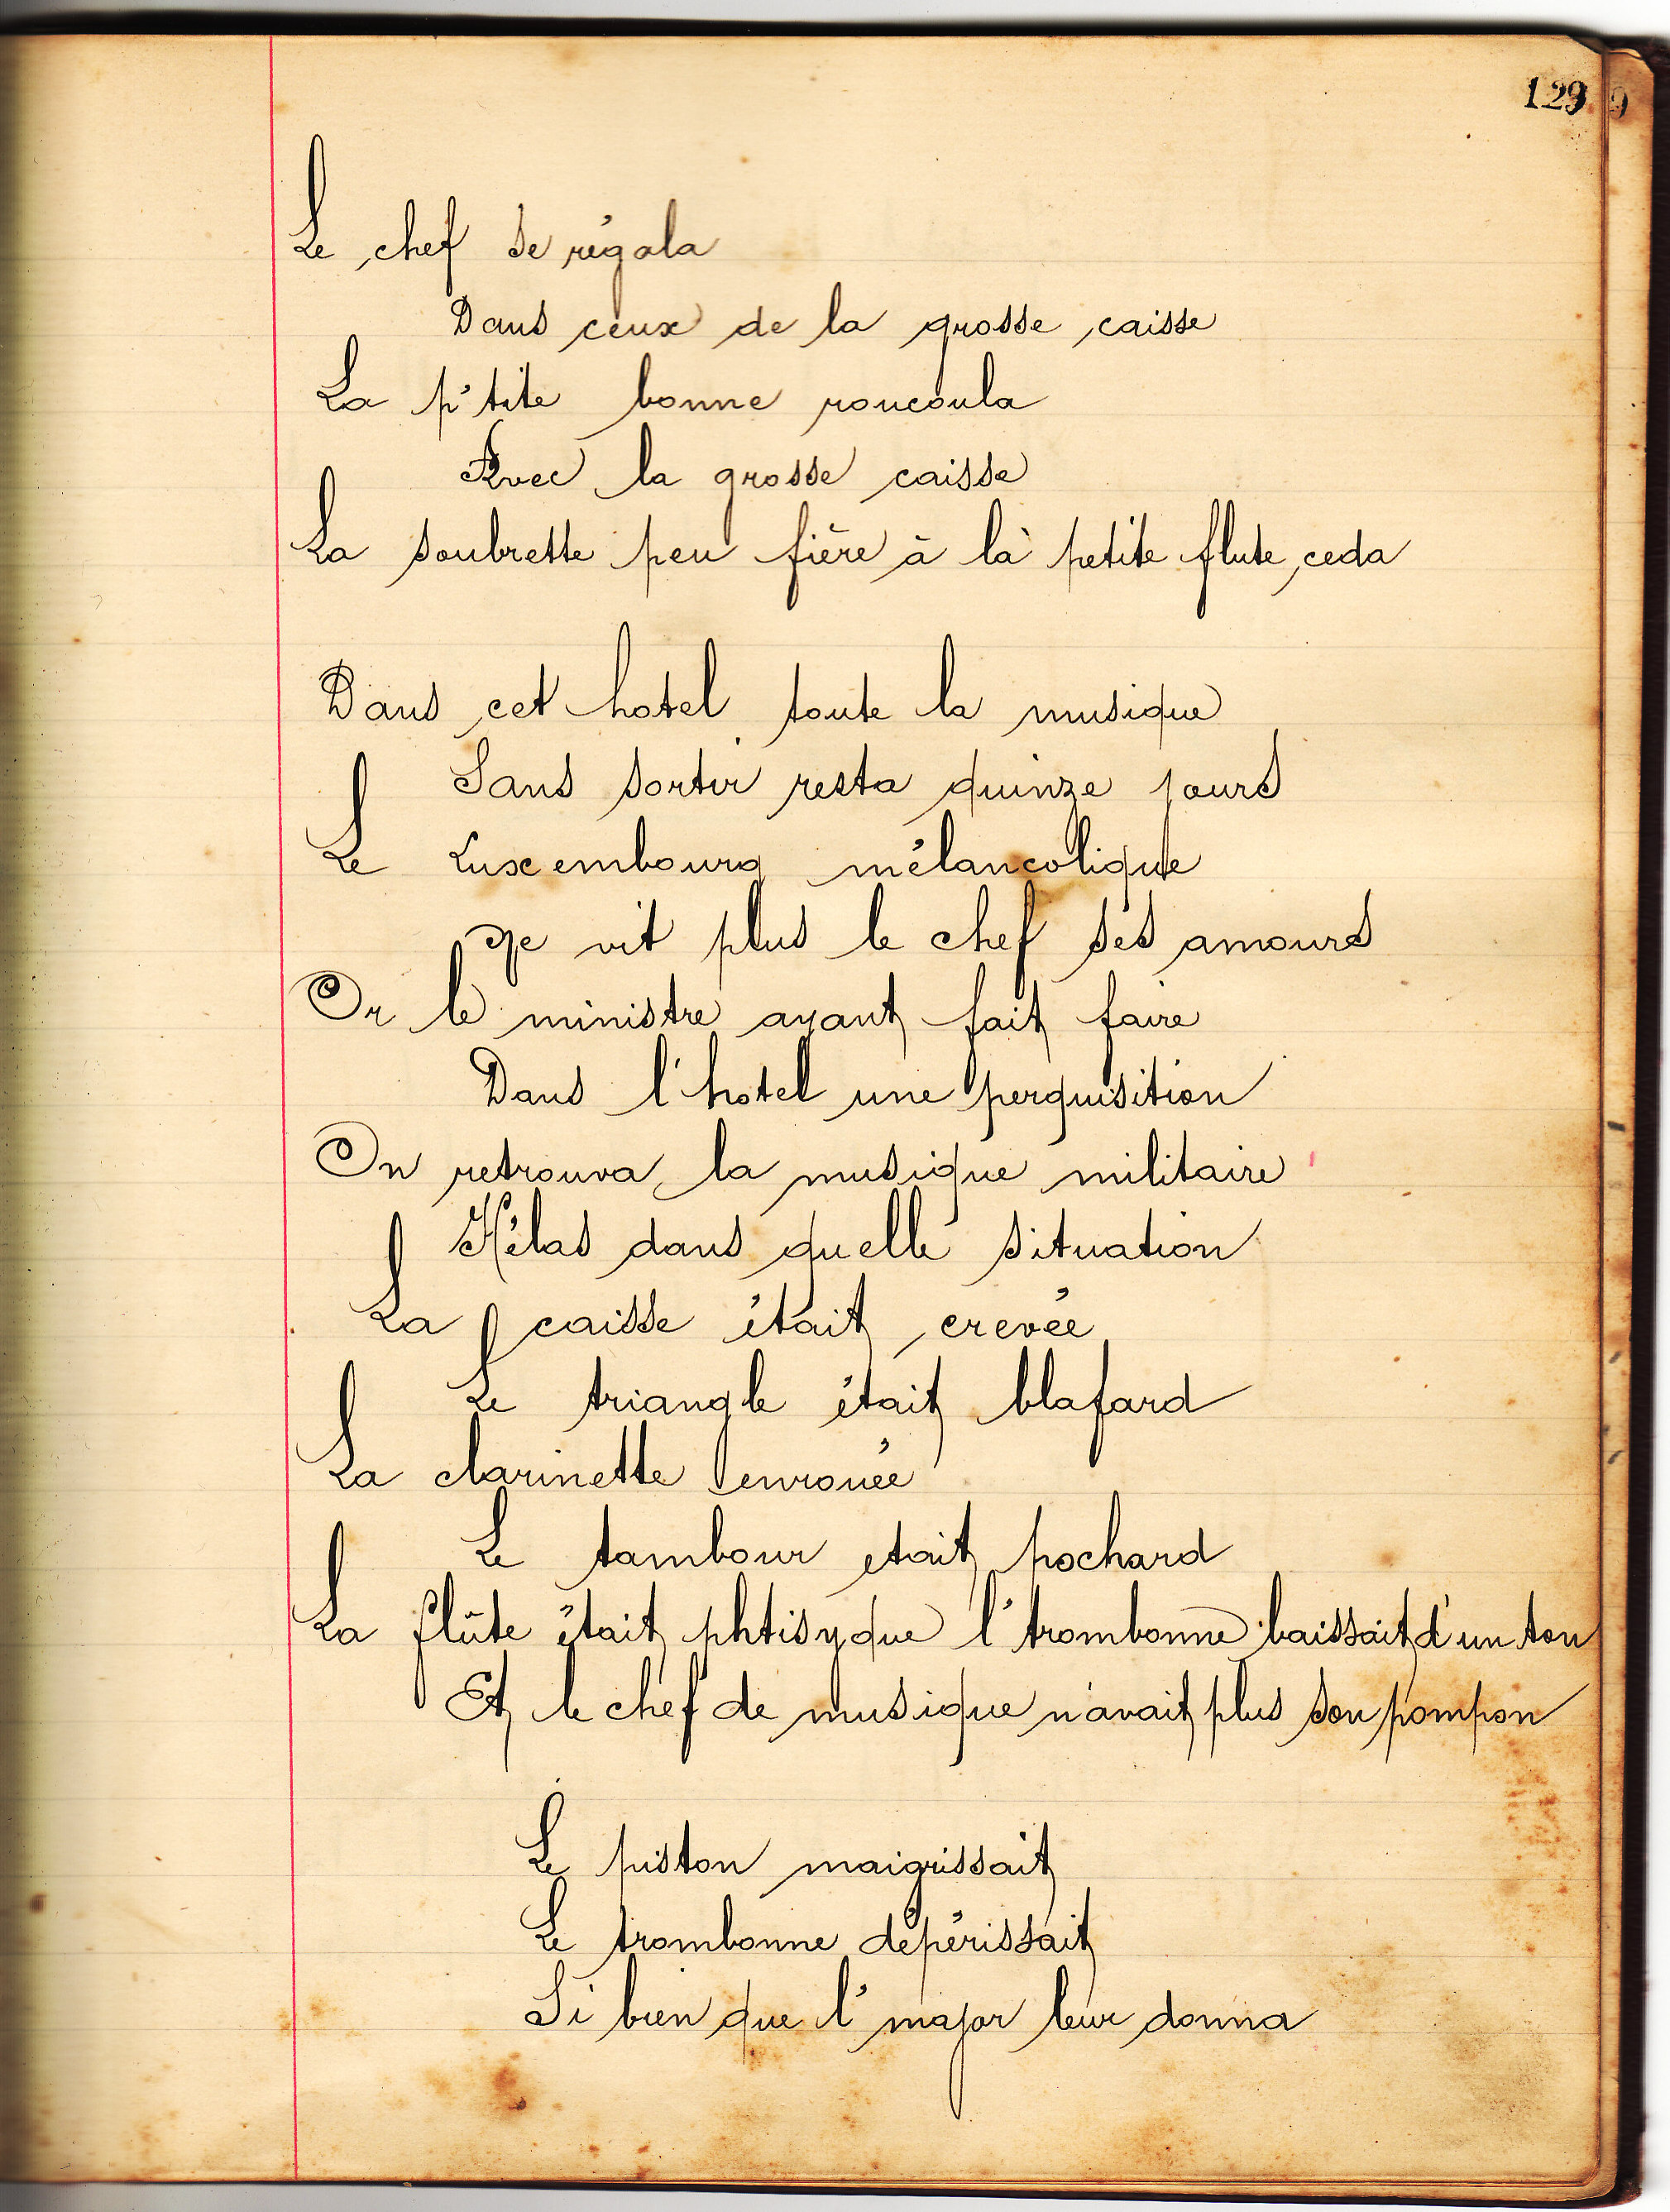 129
Le chef se régala
Dans ceux de la grosse caisse
La p'tite bonne roucoula
Avec la grosse caisse
La soubrette peu fière à la petite flute ceda
Dans cet hotel toute la musique
Sans sortir resta quinze jours
Le Luxembourg mélancolique
Ne vit plus le chef ses amours
Or le ministre ayant fait faire
Dans l'hotel une perquisition
On retrouva la musique militaire
Hélas dans quelle situation
La caisse était crevée
Le triangle était blafard
La clarinette enrouée
Le tambour etait pochard
La flûte était phtisyque l'trombonne baissait d'un ton
Et le chef de musique n'avait plus son pompon
Le piston maigrissait
Le trombonne dépérissait
Si bien que l'major leur donna